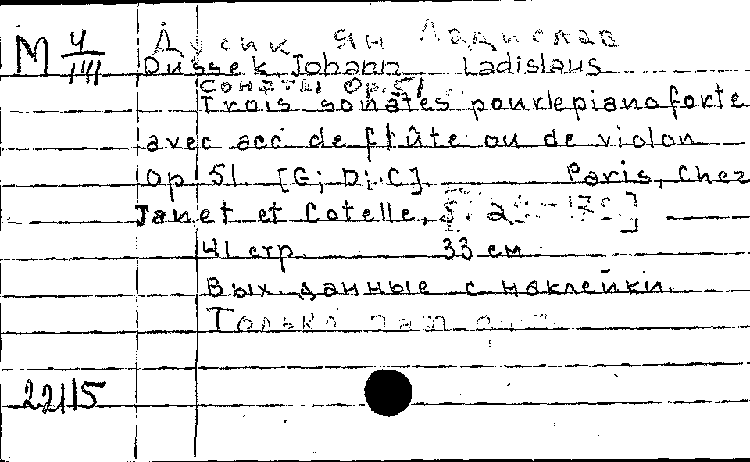 М 4/III Дусик Ян Ладислав
Dussek Johann Ladislaus
Сонаты Op. 51
Trois sonates pour le piano forte
avec acc de flûte ou de violon
Op 51. [G; D; C]. Paris, Chez
Janet et Cotelle,
41 стр. 33 см
Вых. данные с наклейки.
Только
22115